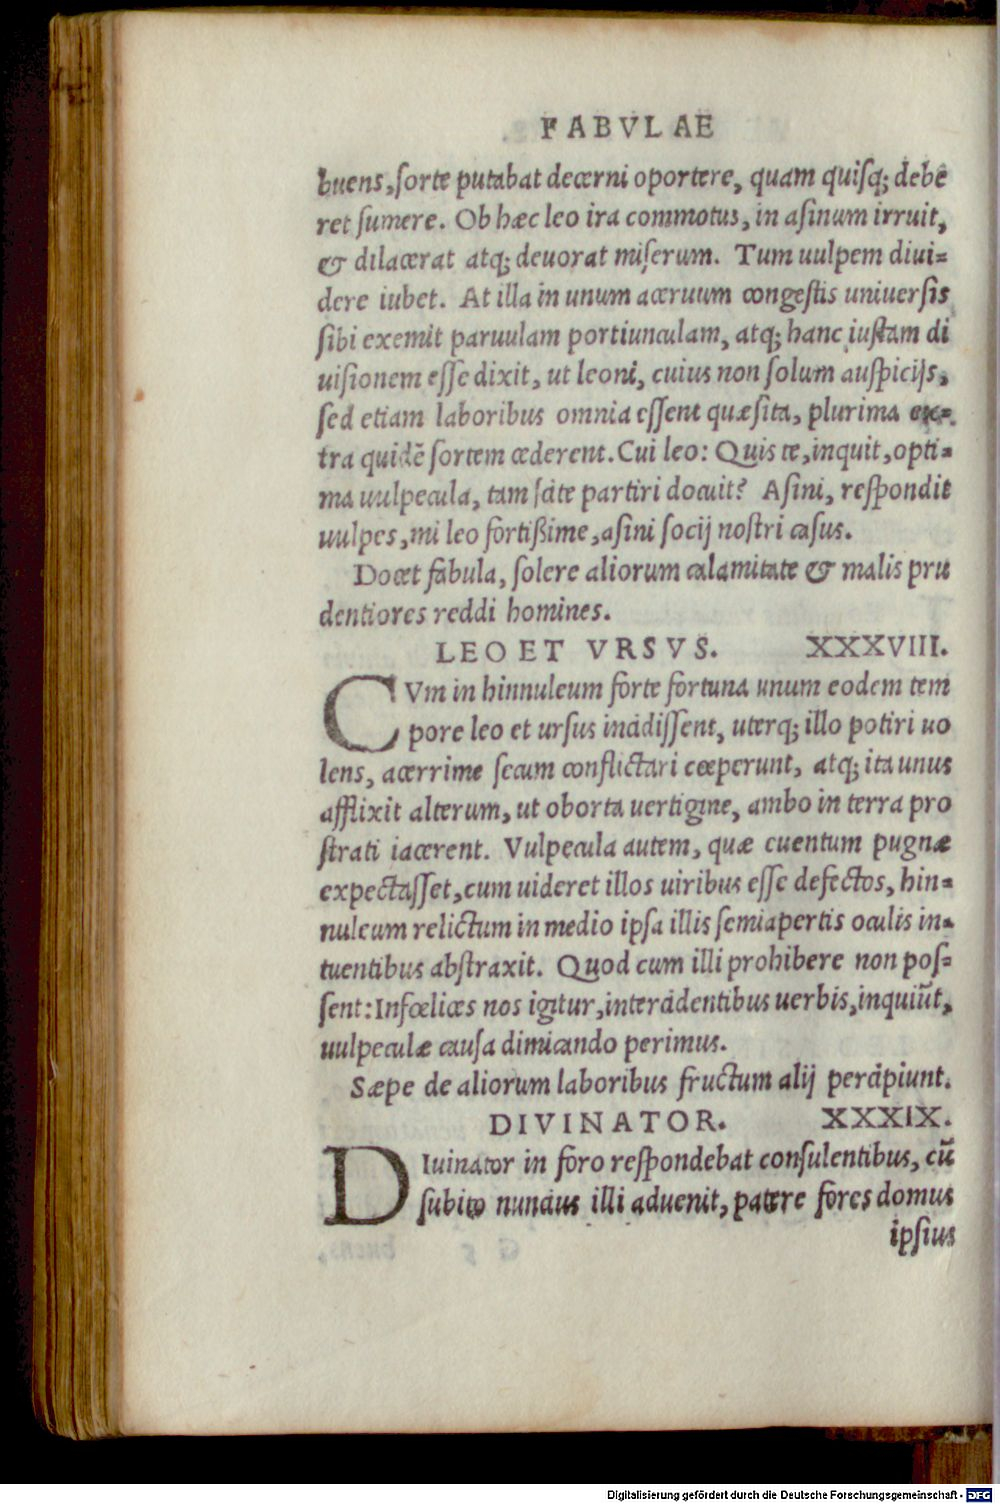 FABVLAE
buens, ſorte putabat decerni oportere, quam quiſq; debē
ret ſumere. Ob hæc leo ira commotus, in aſinum irruit,
& dilacerat atq; deuorat miſerum. Tum uulpem diui=
dere iubet. At illa in unum aceruum congeſtis uniuerſis
ſibi exemit paruulam portiunculam, atq; hanc iuſtam di
uiſionem eſſe dixit, ut leoni, cuius non ſolum auſpicijs,
ſed etiam laboribus omnia eſſent quæſita, plurima ex=
tra quidē ſortem cederent. Cui leo: Quis te, inquit, opti=
ma uulpecula, tam ſcite partiri docuit? Aſini, reſpondit
uulpes, mi leo fortißime, aſini ſocij noſtri caſus.
Docet fabula, ſolere aliorum calamitate & malis pru
dentiores reddi homines.
LEO ET VRSVS. XXXVIII.
CVm in hinnuleum forte fortuna unum eodem tem
pore leo et urſus incidiſſent, uterq; illo potiri uo
lens, acerrime ſecum conflictari cœperunt, atq; ita unus
afflixit alterum, ut oborta uertigine, ambo in terra pro
ſtrati iacerent. Vulpecula autem, quæ euentum pugnæ
expectaſſet, cum uideret illos uiribus eſſe defectos, hin=
nuleum relictum in medio ipſa illis ſemiapertis oculis in=
tuentibus abſtraxit. Quod cum illi prohibere non poſ=
ſent: Infœlices nos igitur, intercidentibus uerbis, inquiūt,
uulpeculæ cauſa dimicando perimus.
Sæpe de aliorum laboribus fructum alij percipiunt.
DIVINATOR. XXXIX.
DIuinator in foro reſpondebat conſulentibus, cū
ſubito nuncius illi aduenit, patere fores domus
ipſius
Digitalisierung gefördert durch die Deutsche Forschungsgemeinschaft - DFG